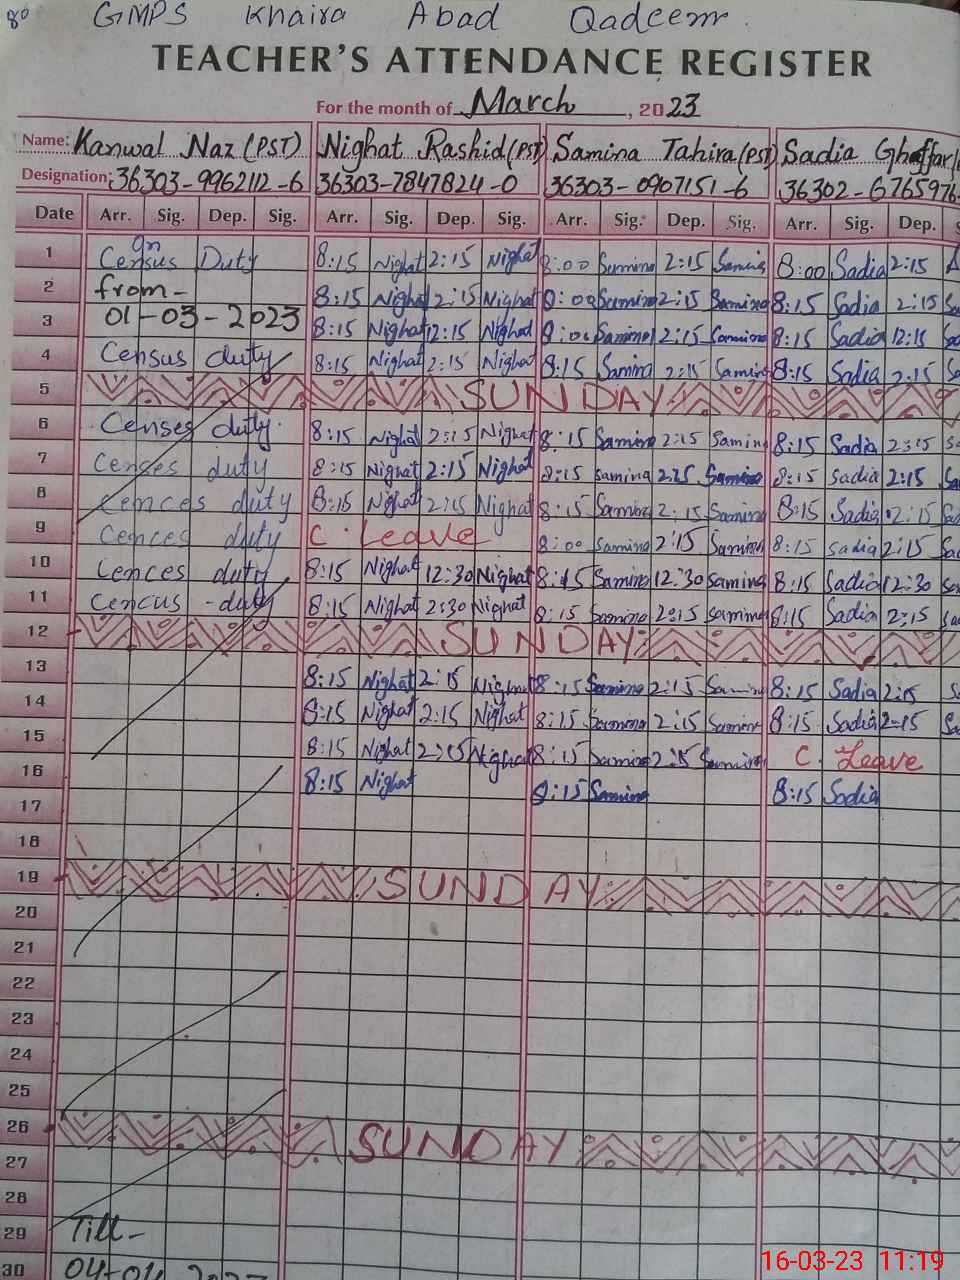 80 GMPS Khaira Abad Qadeem.
TEACHER'S ATTENDANCE REGISTER
For the month of March, 2023
Name: Kanwal Naz (PST) Nighat Rashid (PST) Samina Tahira (PST) Sadia Ghaffar
Designation: 36303-9962112-6 36303-7847824-0 36303-0907151-6 36302-6765976-
Date Arr. Sig. Dep. Sig. Arr. Sig. Dep. Sig. Arr. Sig. Dep. Sig. Arr. Sig. Dep. S
1 On Census Duty 8:15 Nighat 2:15 Nighat 8:00 Samina 2:15 Samina 8:00 Sadia 2:15
2 from- 8:15 Nighat 2:15 Nighat 8:00 Samina 2:15 Samina 8:15 Sadia 2:15 Sa
3 01-03-2023 8:15 Nighat 12:15 Nighat 8:00 Samina 12:15 Samina 8:15 Sadia 12:15 Sa
4 Census duty 8:15 Nighat 2:15 Nighat 8:15 Samina 2:15 Samina 8:15 Sadia 2:15 Sa
5 SUNDAY
6 Censes duty. 8:15 Nighat 2:15 Nighat 8:15 Samina 2:15 Samina 8:15 Sadia 2:15 Sa
7 Censes duty 8:15 Nighat 2:15 Nighat 8:15 Samina 2:15 Samina 8:15 Sadia 2:15 Sa
8 Cences duty 8:15 Nighat 2:15 Nighat 8:15 Samina 2:15 Samina 8:15 Sadia 2:15 Sa
9 Cences duty C. Leave 8:00 Samina 2:15 Samina 8:15 Sadia 2:15 Sa
10 Cences duty 8:15 Nighat 12:30 Nighat 8:15 Samina 12:30 Samina 8:15 Sadia 12:30 Sa
11 Cencus -duty 8:15 Nighat 2:30 Nighat 8:15 Samina 2:15 Samina 8:15 Sadia 2:15 Sa
12 SUNDAY
13 8:15 Nighat 2:15 Nighat 8:15 Samina 2:15 Samina 8:15 Sadia 2:15 S
14 8:15 Nighat 2:15 Nighat 8:15 Samina 2:15 Samina 8:15 Sadia 2:15 Sa
15 8:15 Nighat 2:15 Nighat 8:15 Samina 2:15 Samina C. Leave
16 8:15 Nighat 8:15 Samina 8:15 Sadia
17
18
19 SUNDAY
20
21
22
23
24
25
26 SUNDAY
27
28
29 Till-
30 04-04
16-03-23 11:19